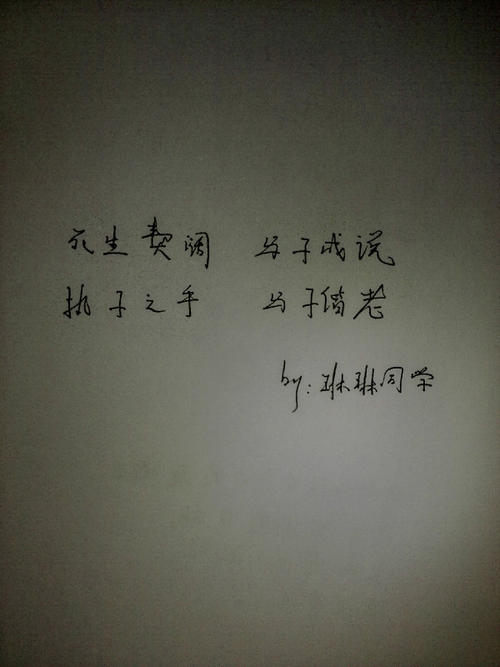 死生契阔 与子成说
执子之手 与子偕老
by: 琳琳同学